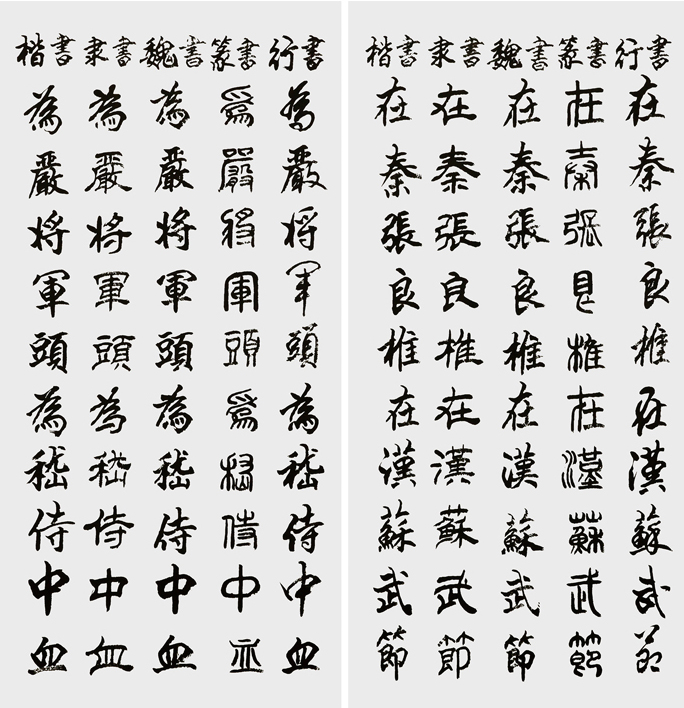 楷書 隶書 魏書 篆書 行書
為 為 為 為 為
嚴 嚴 嚴 嚴 嚴
将 将 将 将 将
軍 軍 軍 軍 軍
頭 頭 頭 頭 頭
為 為 為 為 為
嵇 嵇 嵇 嵇 嵇
侍 侍 侍 侍 侍
中 中 中 中 中
血 血 血 血 血
楷書 隶書 魏書 篆書 行書
在 在 在 在 在
秦 秦 秦 秦 秦
張 張 張 張 張
良 良 良 良 良
椎 椎 椎 椎 椎
在 在 在 在 在
漢 漢 漢 漢 漢
蘇 蘇 蘇 蘇 蘇
武 武 武 武 武
節 節 節 節 節